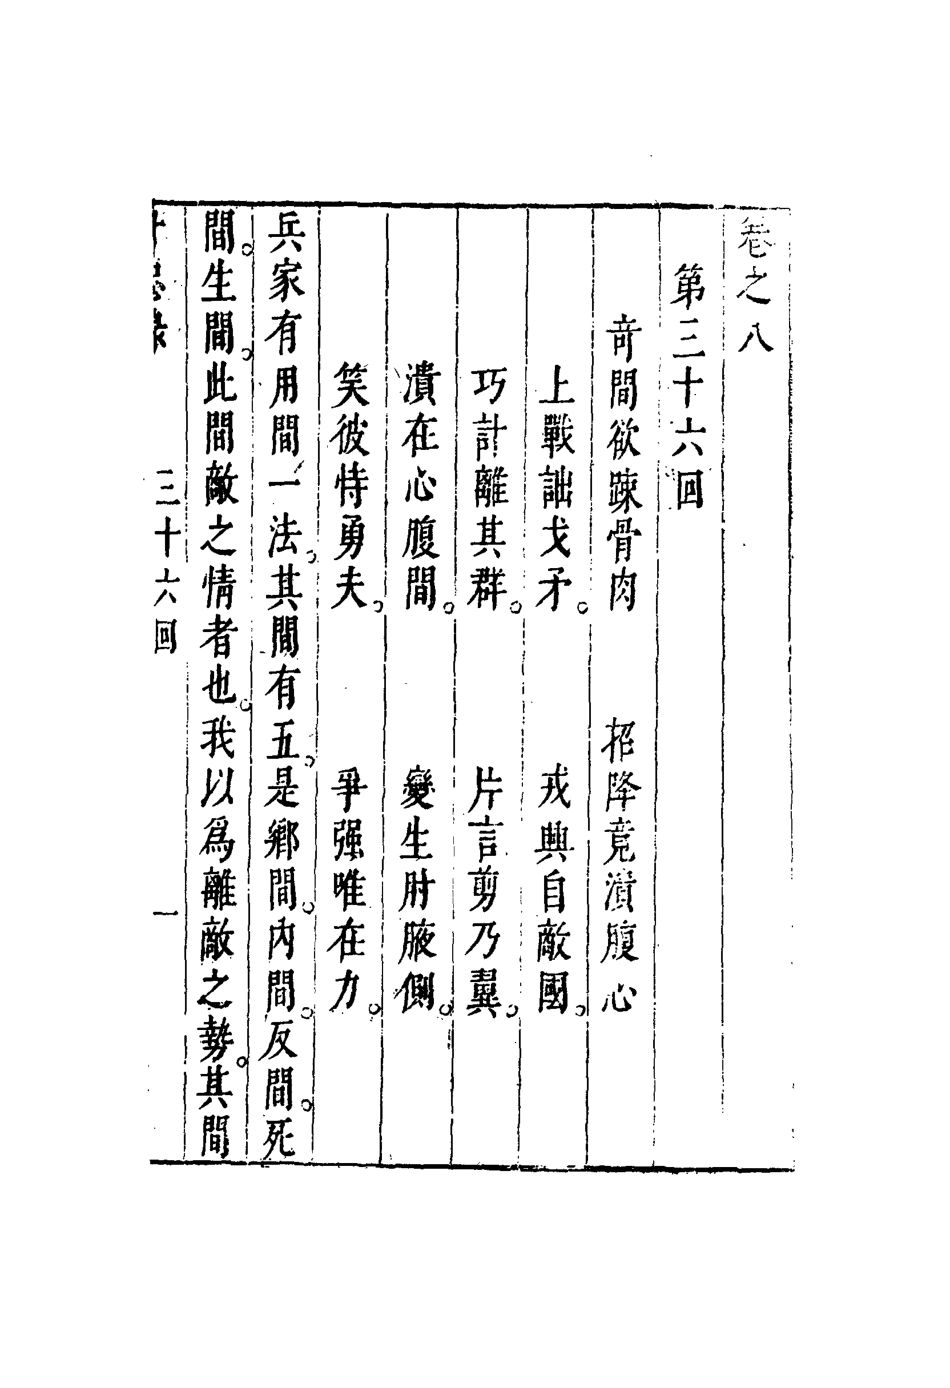 卷之八
第三十六回
奇間欲踈骨肉　招降竟潰腹心
上戰詘戈矛。　戎興自敵國。
巧計離其群。　片言剪乃翼。
潰在心腹間。　變生肘腋側。
笑彼恃勇夫。　爭强唯在力。
兵家有用間一法。其間有五。是鄉間。內間。反間。死
間。生間。此間敵之情者也。我以爲離敵之勢。其間
三十六回　一